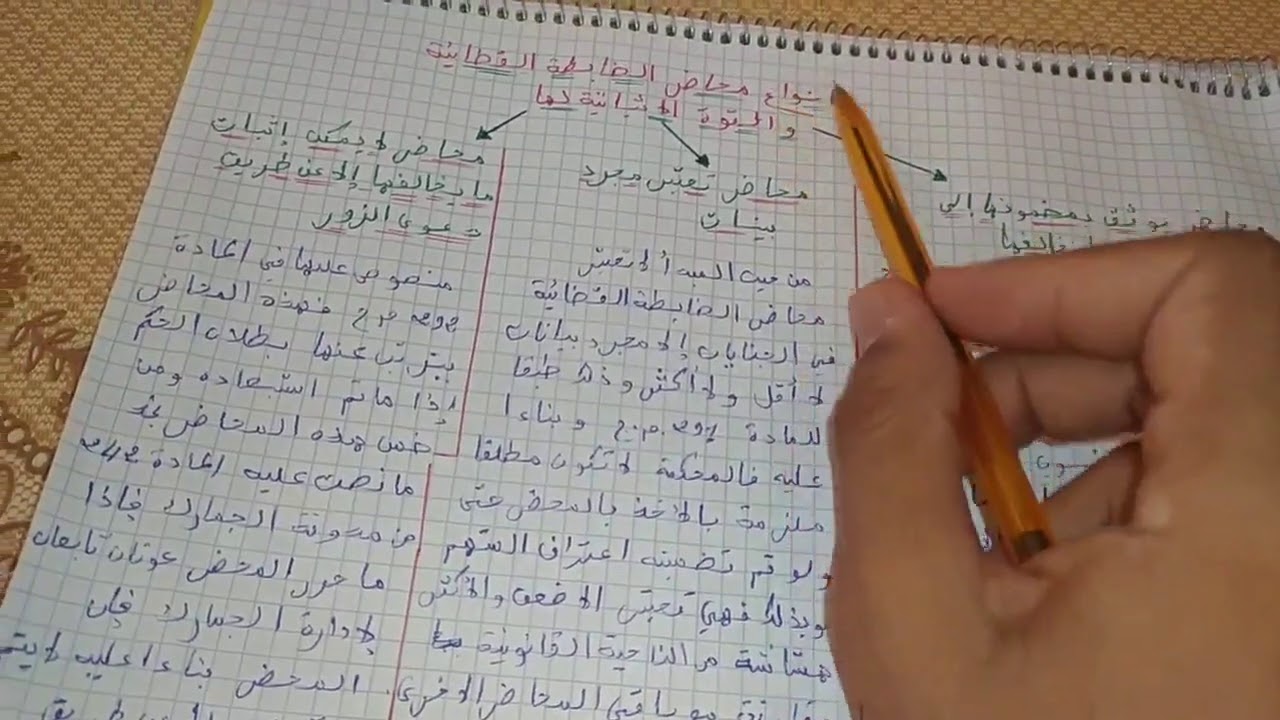 أنواع محاضر الضابطة القضائية
و القوة الإثباتية لها
محاضر يوثق بمضمونها إلى
محاضر تعتبر مجرد
بينات
من حيث المبدأ لا تعتبر
محاضر الضابطة القضائية
في الجنايات إلا مجرد بيانات
لا أقل ولا أكثر و ذلك طبقا
للمادة 291 ق.م.ج و بناءا
عليه فالمحكمة لا تكون مطلقا
ملزمة بالأخذ بالمحضر حتى
ولو تم تضمينه اعتراف المتهم
وبذلك فهي تعتبر الأضعف والأكثر
هشاشة من الناحية القانونية
مقارنة مع باقي المحاضر الأخرى.
محاضر لا يمكن إثبات
ما يخالفها إلا عن طريق
دعوى الزور
منصوص عليها في المادة
292 ق.م.ج فهذه المحاضر
يترتب عنها بطلان الحكم
إذا ما تم استبعاده ومن
ضمن هذه المحاضر نجد
ما نصت عليه المادة 242
من مدونة الجمارك فإذا
ما حرر المحضر عونان تابعان
لإدارة الجمارك فإن
المحضر بناءا عليه لا يتم